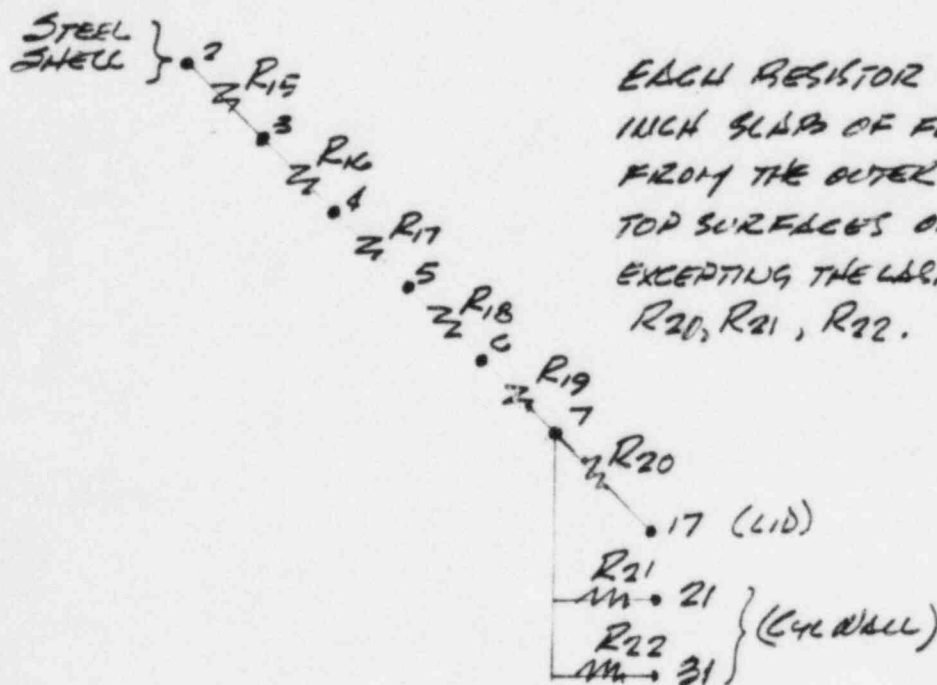 STEEL
SHELL
2
R15
3
R16
4
R17
5
R18
6
R19
7
R20
17 (LID)
R21
21
R22
31
(CYL WALL)
EACH RESISTOR
INCH SLABS OF
FROM THE OUTER
TOP SURFACES
EXCEPTING THE
R20, R21, R22.